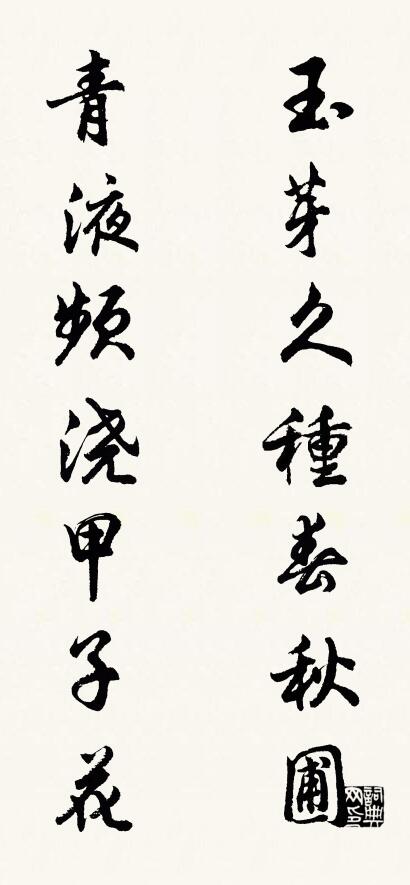 玉芽久種春秋圃
青液频浇甲子花
詞典网